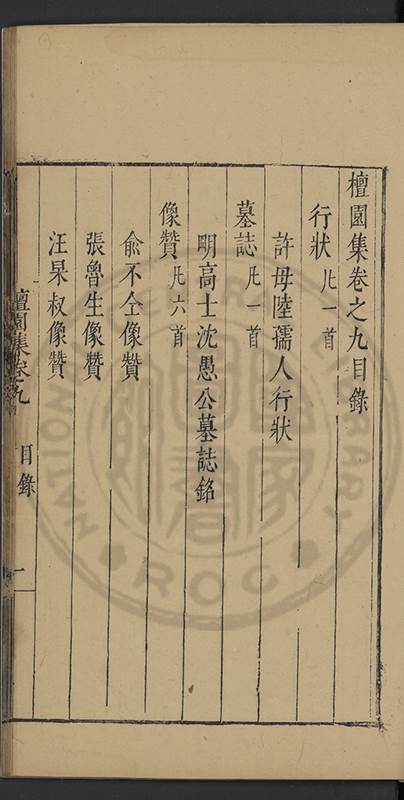 檀園集卷之九目錄
行狀 凡一首
許母陸孺人行狀
墓誌 凡一首
明高士沈愚公墓誌銘
像贊 凡六首
俞不仝像贊
張魯生像贊
汪杲叔像贊
檀園集卷九 目錄 一